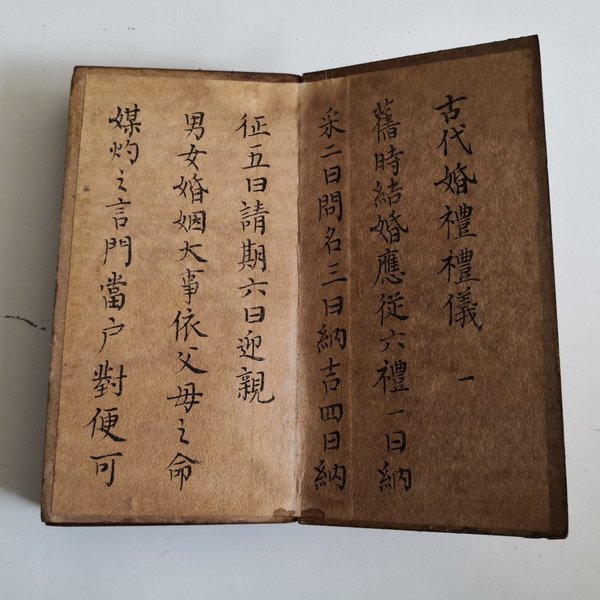 古代婚禮禮儀 一
舊時結婚應從六禮一曰納
采二曰問名三曰納吉四曰納
征五曰請期六曰迎親
男女婚姻大事依父母之命
媒灼之言門當户對便可